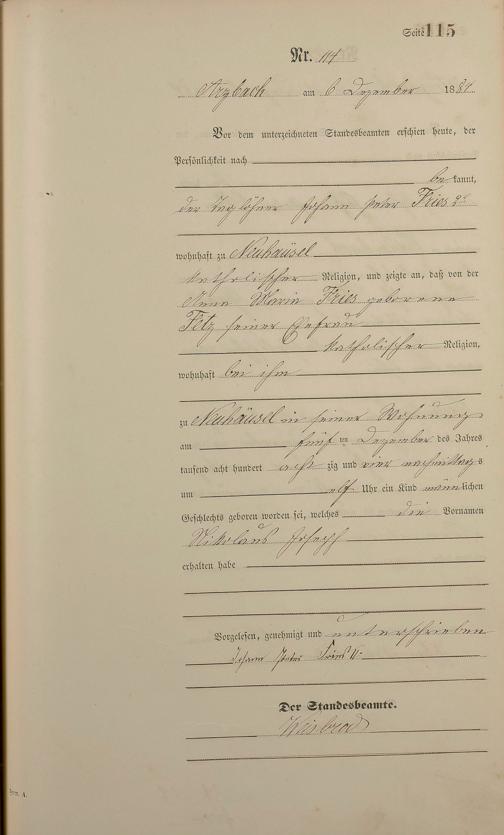 Seite 115
Nr. 114
Arzbach am 6 Dezember 1884
Vor dem unterzeichneten Standesbeamten erschien heute, der
Persönlichkeit nach
be kannt,
der Taglöhner Johann Peter Fries 2r
wohnhaft zu Neuhäusel
katholischer Religion, und zeigte an, daß von der
Anna Maria Fries geborene
Fitz seiner Ehefrau
katholischer Religion,
wohnhaft bei ihm
zu Neuhäusel in seiner Wohnung
am fünften Dezember des Jahres
tausend acht hundert acht zig und vier nachmittags
um elf Uhr ein Kind männlichen
Geschlechts geboren worden sei, welches die Vornamen
Nikolaus Joseph
erhalten habe
Vorgelesen, genehmigt und unterschrieben
Johann Peter Fries
Der Standesbeamte.
Weisbrod
A.